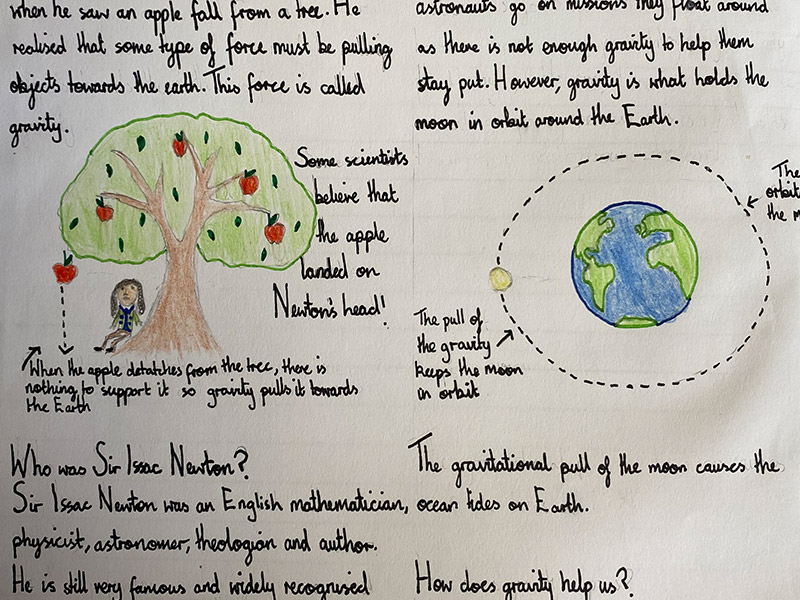 when he saw an apple fall from a tree. He
realised that some type of force must be pulling
objects towards the earth. This force is called
gravity.
Some scientists
believe that
the apple
landed on
Newton's head!
When the apple detatches from the tree, there is
nothing to support it so gravity pulls it towards
the Earth
Who was Sir Issac Newton?
Sir Issac Newton was an English mathematician,
physicist, astronomer, theologian and author.
He is still very famous and widely recognised
astronauts go on missions they float around
as there is not enough gravity to help them
stay put. However, gravity is what holds the
moon in orbit around the Earth.
The
orbit
the
The pull of
the gravity
keeps the moon
in orbit
The gravitational pull of the moon causes the
ocean tides on Earth.
How does gravity help us?